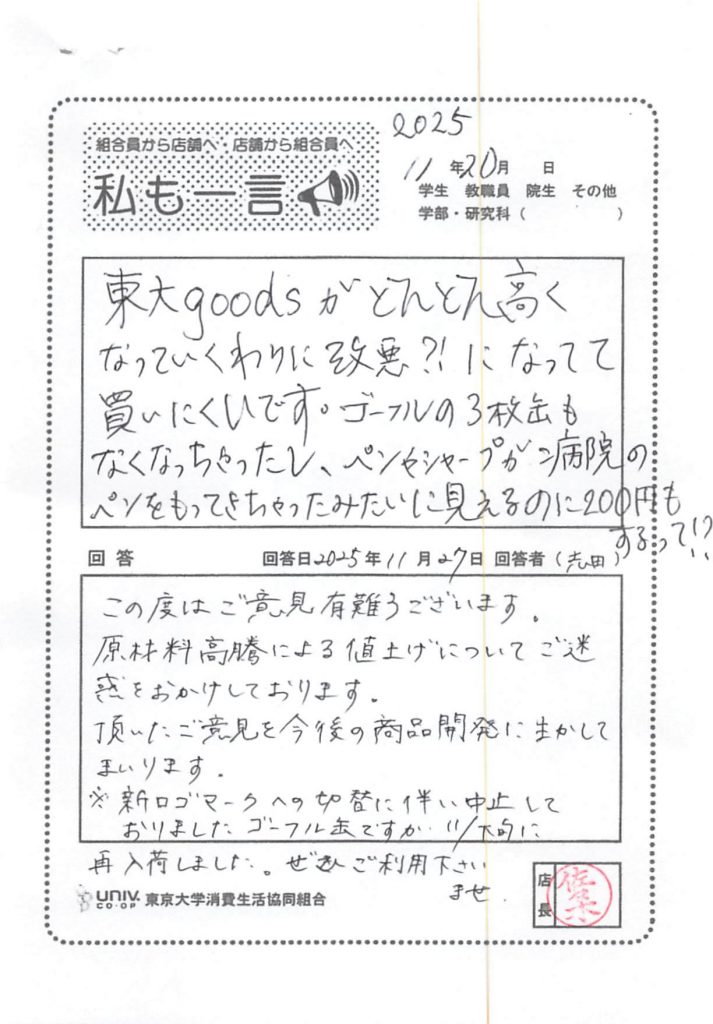 2025
組合員から店舗へ・店舗から組合員へ
11年20月 日
私も一言
学生 教職員 院生 その他
学部・研究科( )
東大goodsがどんどん高く
なっていくわりに改悪?!になってて
買いにくいです。ゴーフルの3枚缶も
なくなっちゃったし、ペンやシャープが病院の
ペンをもってきちゃったみたいに見えるのに200円も
するって!?
回答 回答日2025年11月27日 回答者(志田)
この度はご意見有難うございます。
原材料高騰による値上げについてご迷
惑をおかけしております。
頂いたご意見を今後の商品開発に生かして
まいります。
※新ロゴマークへの切替に伴い中止して
おりましたゴーフル缶ですが、11/下旬に
再入荷しました。ぜひご利用下さい
ませ.
UNIV. CO・OP 東京大学消費生活協同組合
店長 佐々木